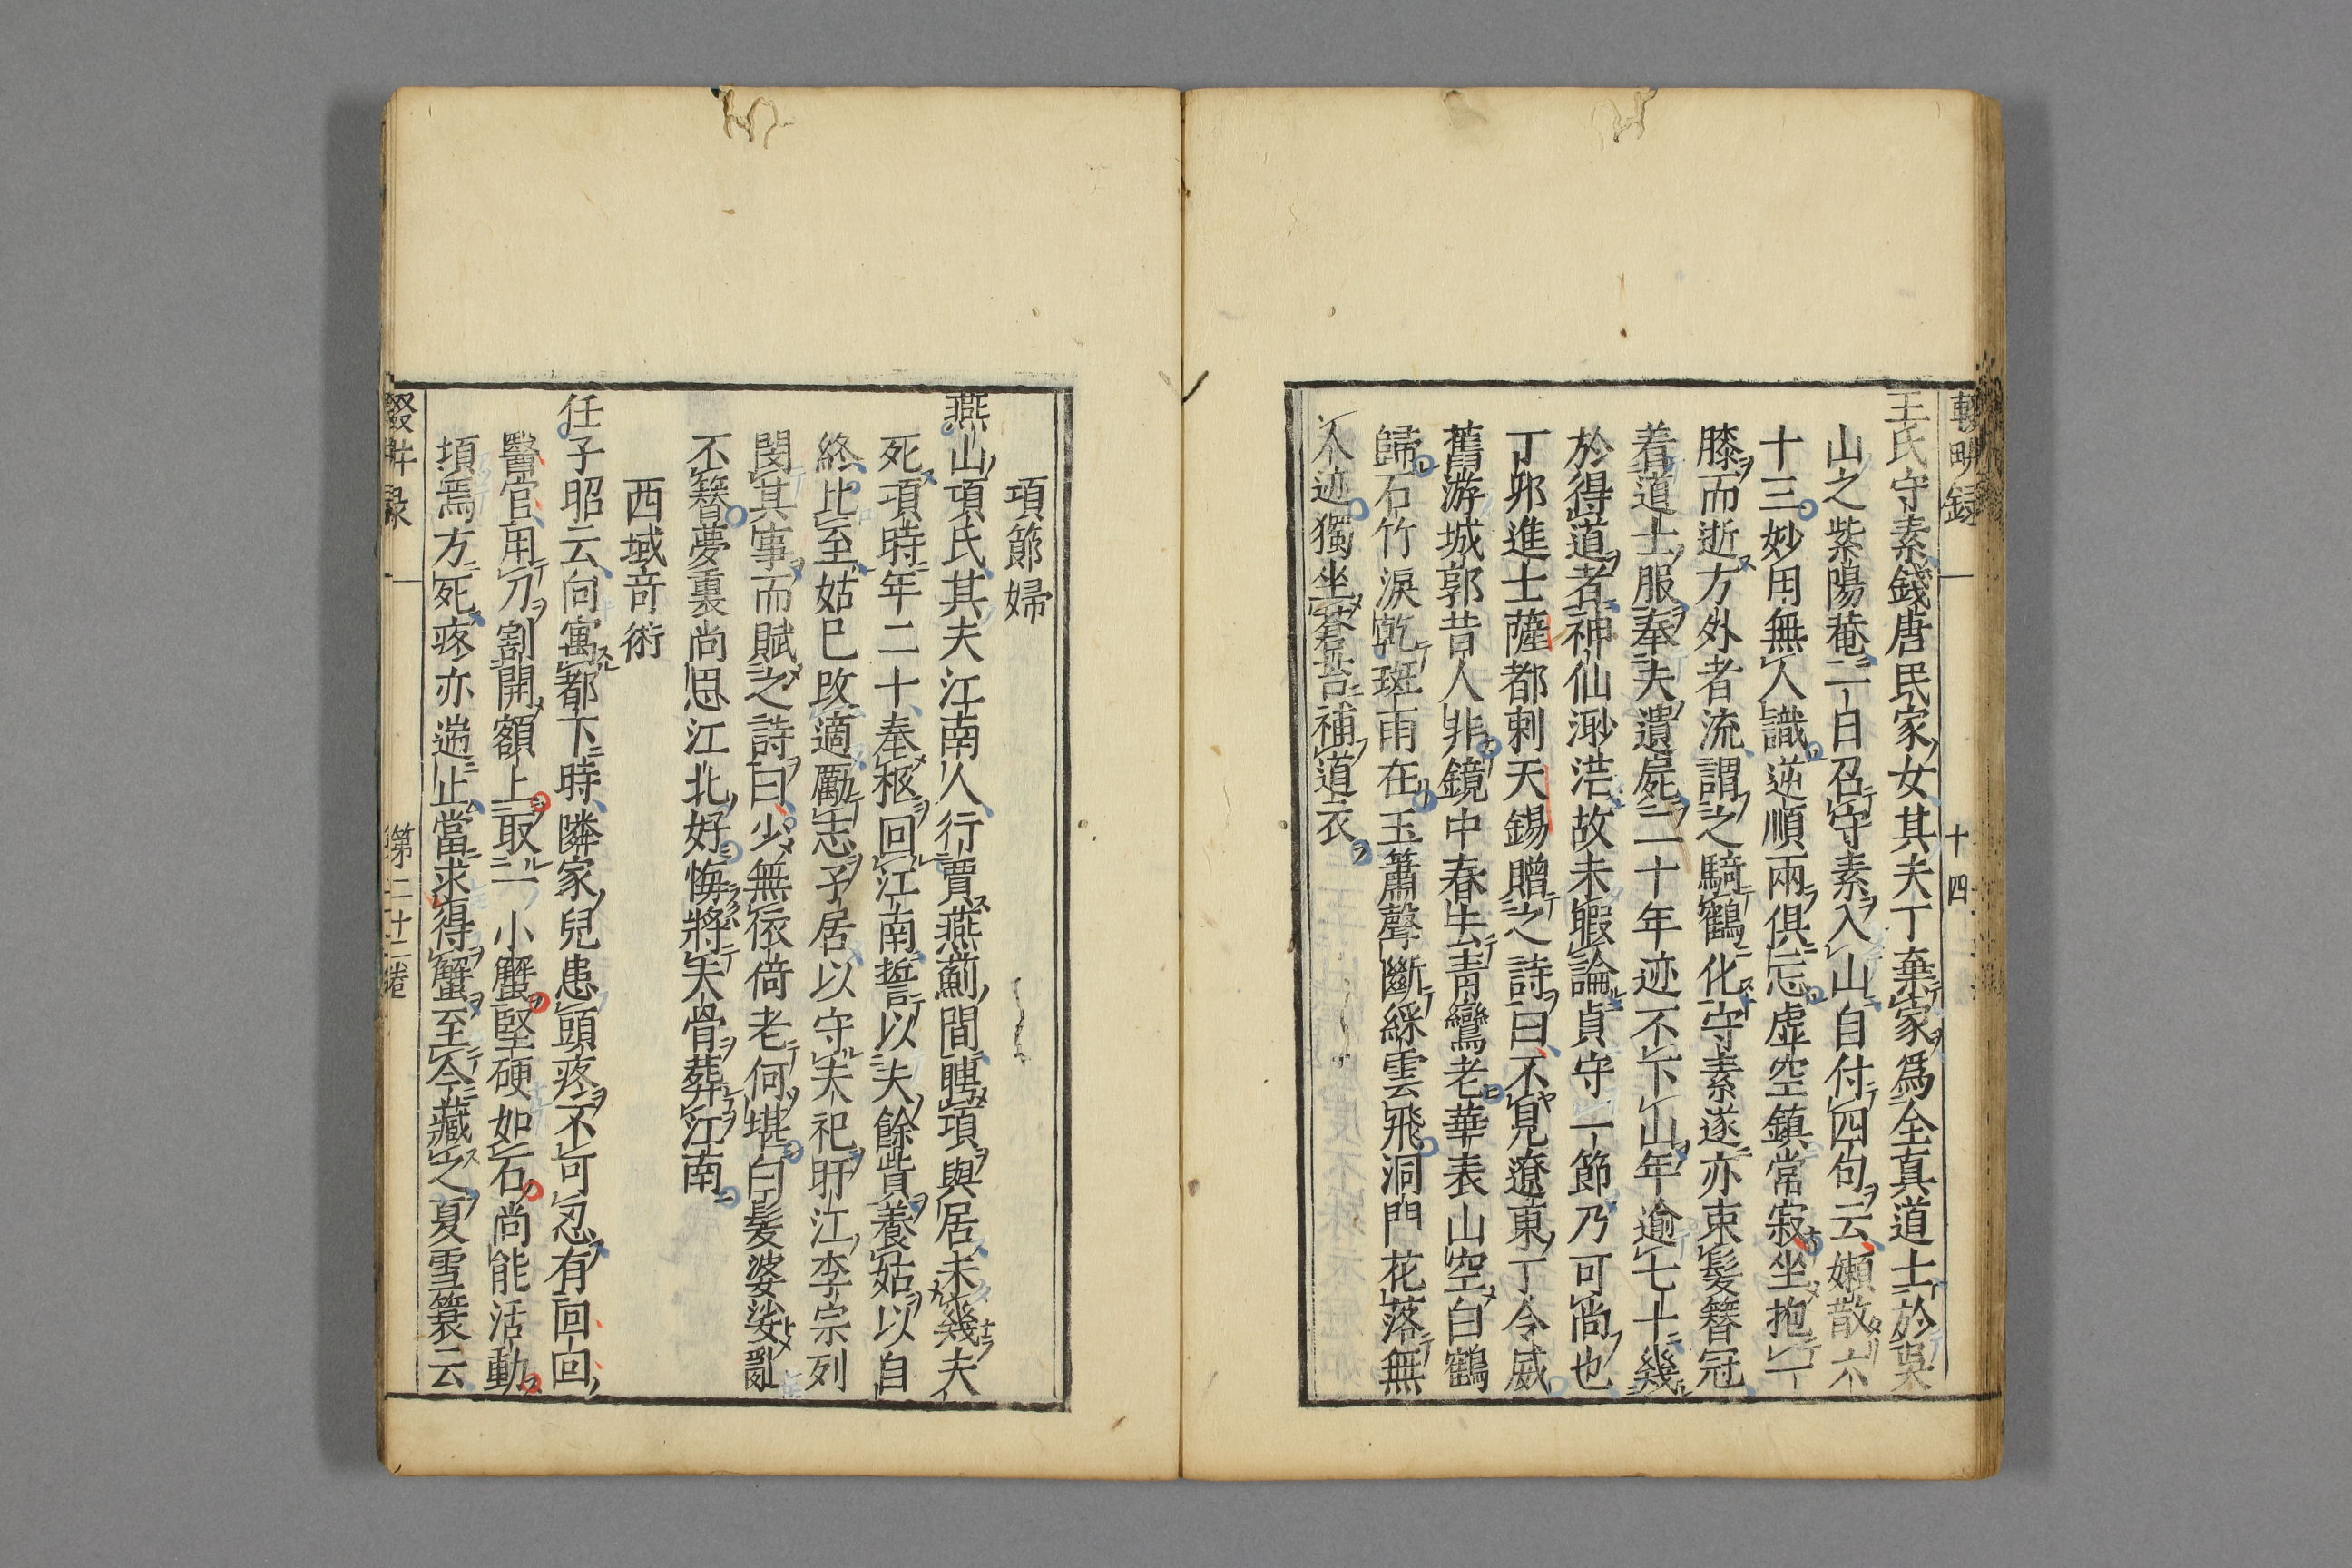 輟畊録
十四
王氏守素錢唐民家女其夫丁棄家爲全真道士於吳
山之紫陽菴二日召守素入山自付四句云嬾散六
十三妙用無人識逆順兩俱忘虛空鎮常寂坐抱一
膝而逝方外者流謂之騎鶴化守素遂亦束髮簪冠
着道士服奉夫遺屍二十年迹不下山年逾七十幾
於得道者神仙渺茫故未暇論貞守一節乃可尚也
丁卯進士薩都剌天錫贈之詩曰不見遼東丁令威
舊游城郭昔人非鏡中春去青鸞老華表山空白鶴
歸石竹淚乾斑雨在玉簫聲斷綵雲飛洞門花落無
人迹獨坐蒼苔補道衣
項節婦
燕山項氏其夫江南人行賈燕薊間聘項與居未幾夫
死項時年二十奉柩回江南誓以夫餘貲養姑以自
終比至姑已改適勵志子居以守夫祀盱江李宗列
閔其事而賦之詩曰少無依倚老何堪白髪婆娑亂
不簪夢裏尚思江北好悔將夫骨葬江南
西域竒術
任子昭云向寓都下時隣家兒患頭疼不可忍有回回
醫官用刀割開額上取一小蟹堅硬如石尚能活動
頃焉方死疼亦遄止當求得蟹至今藏之夏雪簑云
輟畊录
第二十二卷